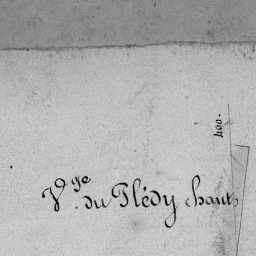 400.
Vge. du Plédy chants